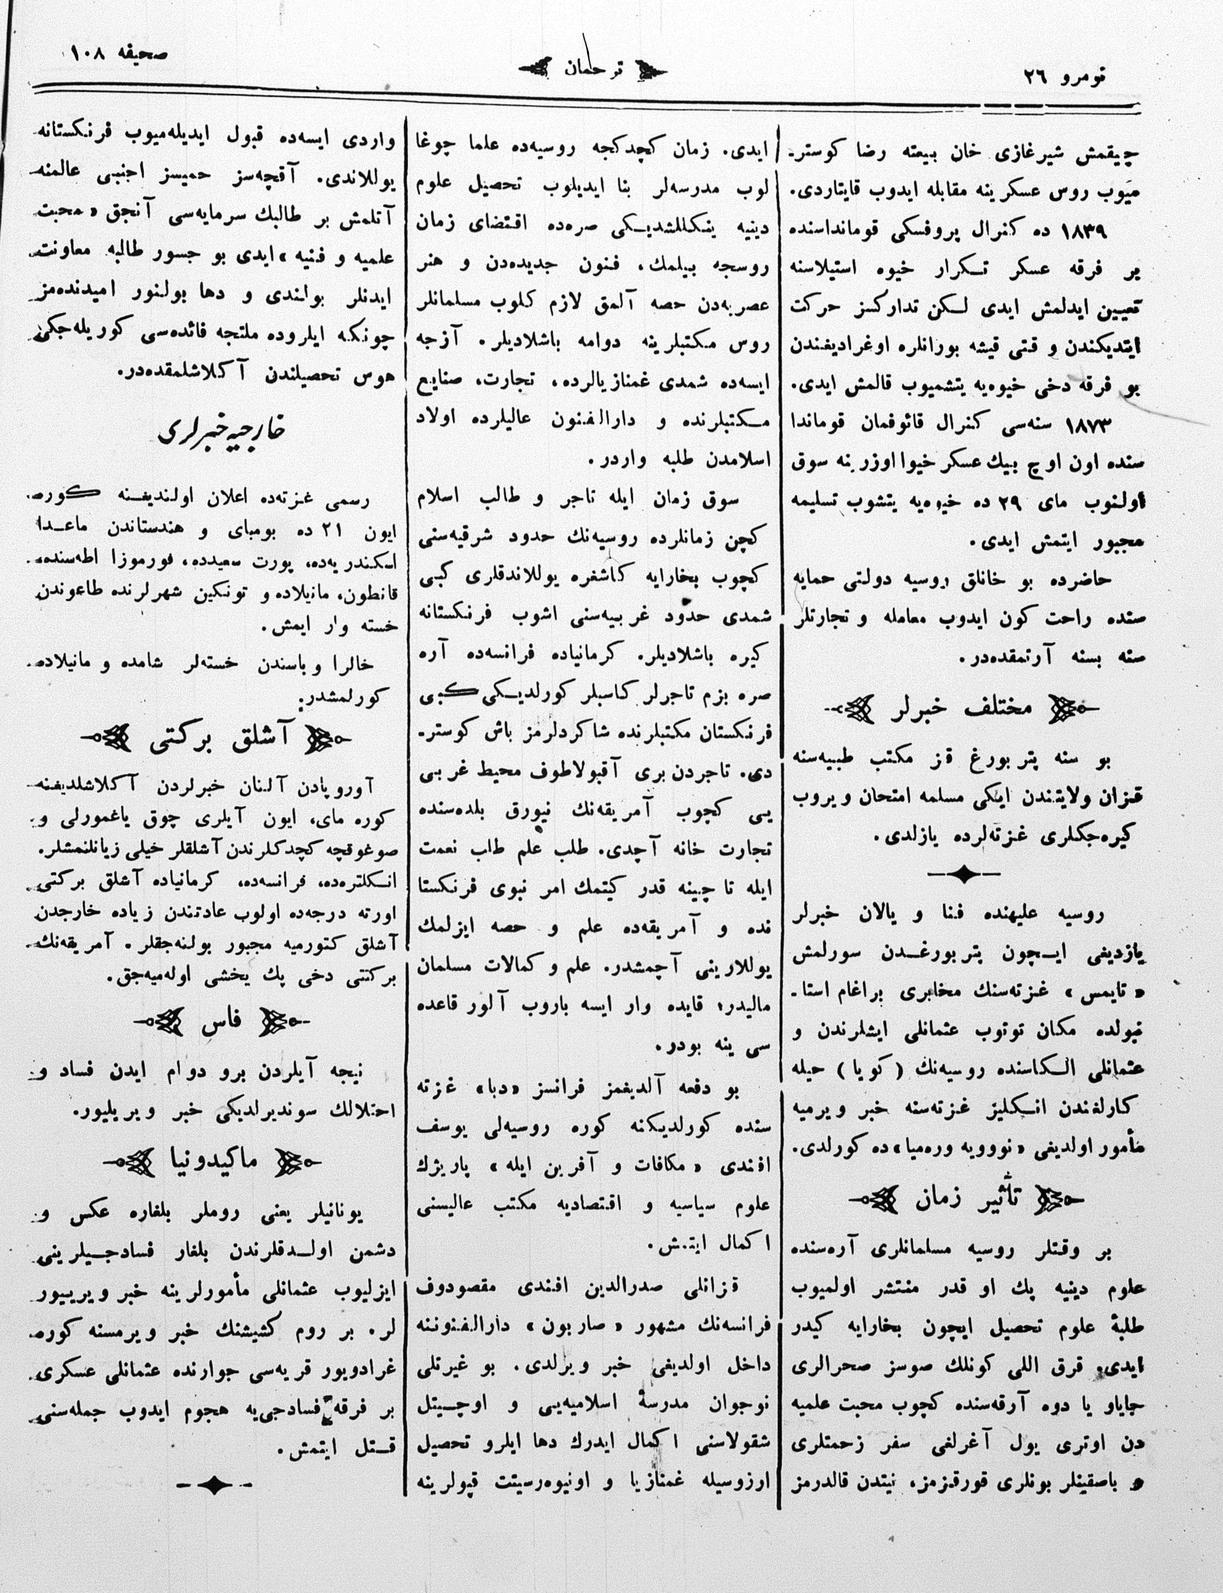 نومرو ٢٦
ترجمان
صحيفه ١٠٨
چيقمش شيرغازى خان بيعته رضا كوستر۔
ميوب روس عسكرينه مقابله ايدوب قايتاردى.
١٨٣٩ ده كنرال پروفسكى قومانداسنده
بر فرقه عسكر تكرار خيوه استيلاسنه
تعيين ايدلمش ايدى لكن تداركسز حركت
ايتديكندن و قتى قيشه بورانلره اوغراديغندن
بو فرقه دخى خيوه‌يه يتشميوب قالمش ايدى.
١٨٧٣ سنه‌سى كنرال قائوفمان قوماندا
سنده اون اوچ بيك عسكر خيوا اوزرينه سوق
اولنوب ماى ٢٩ ده خيوه‌يه يتشوب تسليمه
مجبور ايتمش ايدى.
حاضرده بو خانلق روسيه دولتى حمايه
سنده راحت كون ايدوب معامله و تجارتلر
سنه بسنه آرتمقده‌در.
مختلف خبرلر
بو سنه پتربورغ قز مكتب طبيه‌سنه
قزان ولايتندن ايكى مسلمه امتحان ويروب
كيره‌جكلرى غزته‌لرده يازلدى.
روسيه عليهنده فنا و يالان خبرلر
يازديغى ايچون پتربورغدن سورلمش
«تايمس» غزته‌سنك مخابرى براغام استا۔
نبولده مكان توتوب عثمانلى ايشلرندن و
عثمانلى الكاسنده روسيه‌نك (كويا) حيله
كارلغندن انكليز غزته‌سنه خبر ويرميه
مأمور اولديغى «نوويه وره‌ميا»ده كورلدى.
تأثير زمان
بر وقتلر روسيه مسلمانلرى آره‌سنده
علوم دينيه پك او قدر منتشر اولميوب
طلبۀ علوم تحصيل ايچون بخارايه كيدر
ايدى. قرق اللى كونلك صوسز صحرالرى
جاياو يا دوه آرقه‌سنده كچوب محبت علميه
دن اوترى يول آغرلغى سفر زحمتلرى
و باصقينلر بونلرى قورقيزمز، نيتدن قالدرمز
ايدى. زمان كچدكجه روسيه‌ده علما چوغا
لوب مدرسه‌لر بنا ايديلوب تحصيل علوم
دينيه ينكللشديكى صره‌ده اقتضاى زمان
روسجه بيلمك، فنون جديده‌دن و هنر
عصريه‌دن حصه آلمق لازم كلوب مسلمانلر
روس مكتبلرينه دوامه باشلاديلر. آزجه
ايسه‌ده شمدى غمنازيالرده، تجارت، صنايع
مكتبلرنده و دارالفنون عاليلرده اولاد
اسلامدن طلبه واردر.
سوق زمان ايله تاجر و طالب اسلام
كچن زمانلرده روسيه‌نك حدود شرقيه‌سنى
كچوب بخارايه كاشغره يوللاندقلرى كبى
شمدى حدود غربيه‌سنى اشوب فرنكستانه
كيره باشلاديلر. كرمانياده فرانسه‌ده آره
صره بزم تاجرلر كاسبلر كورلديكى كبى
فرنكستان مكتبلرنده شاكردلرمز باش كوستر۔
دى. تاجردن برى آقبولاطوف محيط غربى
يى كچوب آمريقه‌نك نيورق بلده‌سنده
تجارت خانه آچدى. طلب علم طلب نعمت
ايله تا چينه قدر كيتمك امر نبوى فرنكستا
نده و آمريقه‌ده علم و حصه ايزلمك
يوللارينى آچمشدر. علم و كمالات مسلمان
ماليدر، قايده وار ايسه باروب آلور قاعده
سى ينه بودر.
بو دفعه آلديغمز فرانسز «دبا» غزته
سنده كورلديكنه كوره روسيه‌لى يوسف
افندى «مكافات و آفرين ايله» پاريژك
علوم سياسيه و اقتصاديه مكتب عاليسنى
اكمال ايتمش.
قزانلى صدرالدين افندى مقصودوف
فرانسه‌نك مشهور «صاربون» دارالفنوننه
داخل اولديغى خبر ويرلدى. بو غيرتلى
نوجوان مدرسۀ اسلاميه‌يى و اوچيتل
شقولاسنى اكمال ايدرك دها ايلرو تحصيل
ارزوسيله غمنازيا و اونيوه‌رسيتت قپولرينه
واردى ايسه‌ده قبول ايديله‌ميوب فرنكستانه
يوللاندى. آقچه‌سز حميسز اجنبى عالمنه
آتلمش بر طالبك سرمايه‌سى آنجق «محبت
علميه و فنيه» ايدى بو جسور طالبه معاونت
ايدنلر بولندى و دها بولنور اميدنده‌مز
چونكه ايلروده ملتجه فائده‌سى كوريله‌جكى
هوس تحصيلندن آكلاشلمقده‌در.
خارجيه خبرلرى
رسمى غزته‌ده اعلان اولنديغنه كوره
ايون ٢١ ده بومباى و هندستاندن ماعدا
اسكندريه‌ده، پورت سعيدده، فورموزا اطه‌سنده،
قانطون، مانيلاده و تونكين شهرلرنده طاعوندن
خسته وار ايمش.
خالرا وباسندن خسته‌لر شامده و مانيلاده
كورلمشدر.
آشلق بركتى
آوروپادن آلنان خبرلردن آكلاشلديغنه
كوره ماى، ايون آيلرى چوق ياغمورلى و
صوغوقچه كچدكلرندن آشلقلر خيلى زيانلنمشلر.
انكلتره‌ده، فرانسه‌ده، كرمانياده آشلق بركتى
اورته درجه‌ده اولوب عادتندن زياده خارجدن
آشلق كتورميه مجبور بولنه‌جقلر. آمريقه‌نك
بركتى دخى پك يخشى اوله‌ميه‌جق.
فاس
نيجه آيلردن برو دوام ايدن فساد و
اختلالك سونديرلديكى خبر ويريليور.
ماكيدونيا
يونانيلر يعنى روملر بلغاره عكس و
دشمن اولدقلرندن بلغار فسادجيلرينى
ايزليوب عثمانلى مأمورلرينه خبر ويرييور
لر. بر روم كشيشنك خبر ويرمسنه كوره
غرادوبور قريه‌سى جوارنده عثمانلى عسكرى
بر فرقه فسادجى‌يه هجوم ايدوب جمله‌سنى
قتل ايتمش.